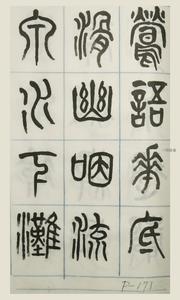 鶯語華底
滑幽咽流
泉水下灘
P-171